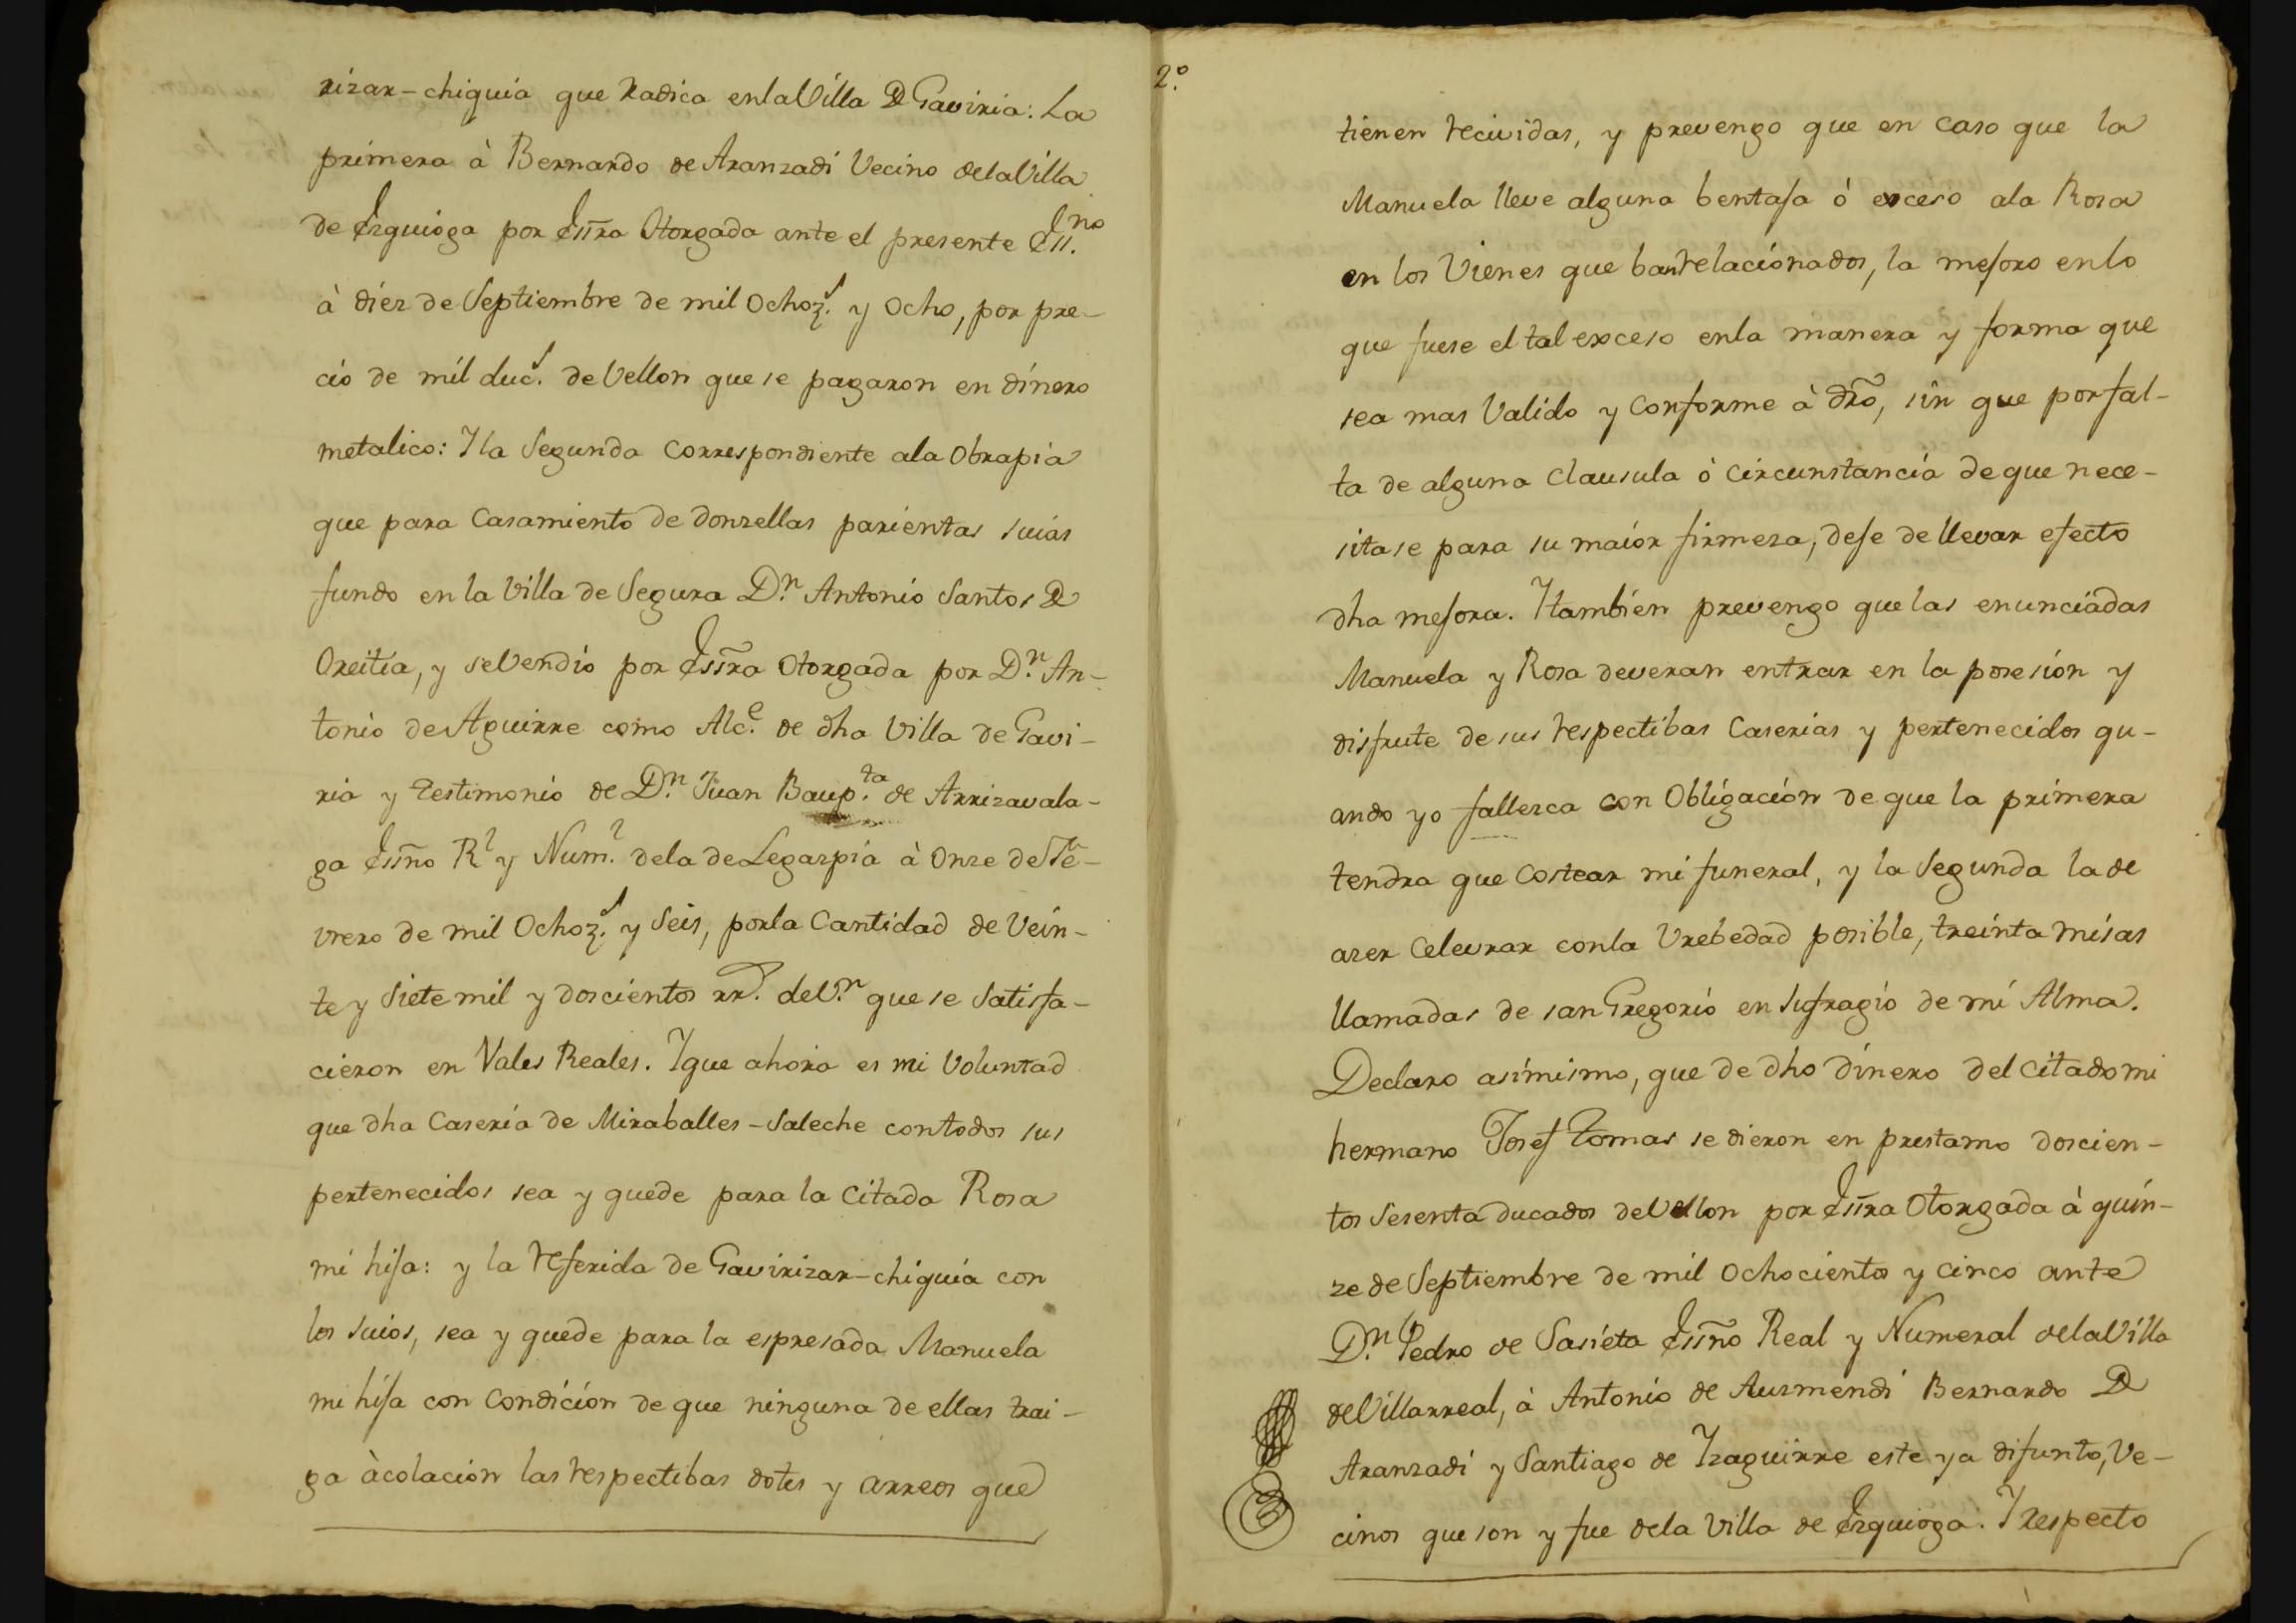 rizar-chiquia que Radica enla Villa de Gaviria: La
primera à Bernardo de Aranzadi Vecino dela Villa
de Ezquioga por Essrã Otorgada ante el presente Ess.no
à diez de Septiembre de mil Ochoz.s y Ocho, por pre-
cio de mil duc.s de Vellon que se pagaron en dinero
metalico: Y la Segunda Correspondiente ala Obrapia
que para Casamiento de donzellas parientas suias
fundo en la Villa de Segura D.n Antonio Santos de
Oreitia, y se Vendio por Essrã Otorgada por D.n An-
tonio de Aguirre como Alc.e de dha Villa de Gavi-
ria y Testimonio de D.n Juan Baup.ta de Arrizavala-
ga Essño R.l y Num.l dela de Legazpia à Onze de Fe-
vrero de mil Ochoz.s y Seis, porla Cantidad de Vein-
te y Siete mil y doscientos rr.s de V.n que se Satisfa-
cieron en Vales Reales. Y que ahora es mi Voluntad
que dha Caseria de Miraballes-Saleche contodos sus
pertenecidos sea y quede para la Citada Rosa
mi hija: y la referida de Gavirizar-chiquia con
los suios, sea y quede para la espresada Manuela
mi hija con Condicion de que ninguna de ellas trai-
ga àcolacion las respectibas dotes y arreos que
2.o
tienen recividas, y prevengo que en caso que la
Manuela lleve alguna bentaja ó exceso ala Rosa
en los Vienes que ban relacionados, la mejoro enlo
que fuese el tal exceso enla manera y forma que
sea mas Valido y Conforme à drõ, sin que por fal-
ta de alguna Clausula ò Circunstancia de que nece-
sitase para su maior firmeza, deje de llevar efecto
dha mejora. Y tambien prevengo que las enunciadas
Manuela y Rosa deveran entrar en la posesion y
disfrute de sus respectibas Caserias y pertenecidos qu-
ando yo fallezca con Obligacion de que la primera
tendra que Costear mi funeral, y la Segunda la de
azer Celevrar conla Vrebedad posible, treinta misas
llamadas de san Gregorio en Sufragio de mi Alma.
Declaro asimismo, que de dho dinero del Citado mi
hermano Josef Tomas se dieron en prestamo doscien-
tos Sesenta ducados de Vellon por Essrã Otorgada à quin-
ze de Septiembre de mil Ochocientos y Cinco ante
D.n Pedro de Sasieta Essño Real y Numeral dela Villa
de Villarreal, à Antonio de Auzmendi Bernardo de
Aranzadi y Santiago de Yzaguirre este ya difunto, Ve-
cinos que son y fue dela Villa de Ezquioga. Y respecto